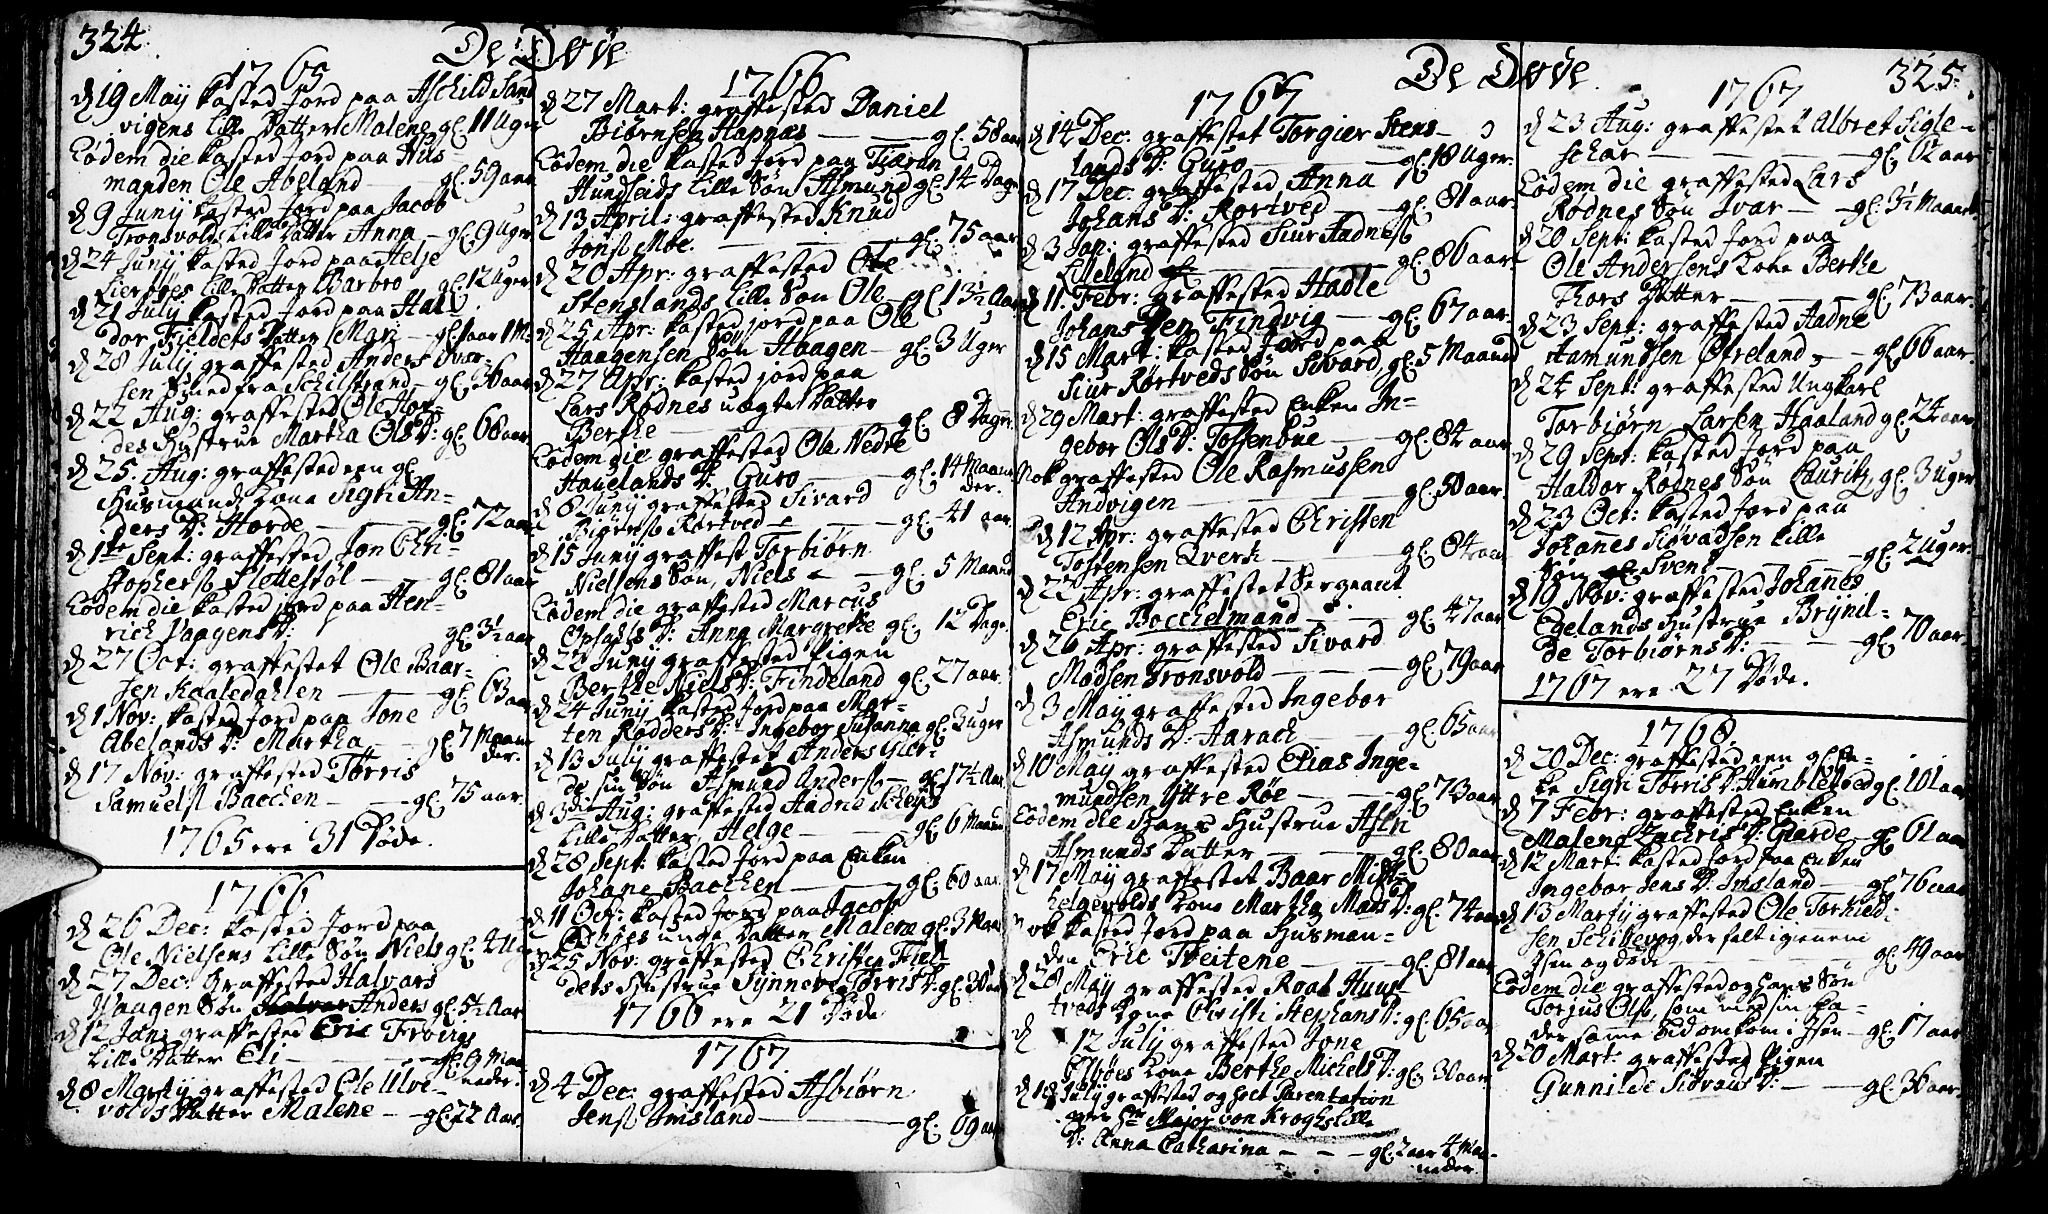 324.
De Døde
1765
d 19 Maÿ kasted Jord paa Aschild Sand
vigens lille Datter Malene gl. 11 Uger
Eodem die kasted Jord paa Huus-
manden Ole Abeland — gl. 59 aar
d 9 Junÿ kasted Jord paa Jacob
Tronsvolds lille Datter Anna — gl. 9 Uger
d 24 Junÿ kasted Jord paa Helje
Lierboes lille Datter Barbro gl. 12 Uger
d 21 Julÿ kasted Jord paa Hal-
dor Fieldets Datter Mari — gl. 1 aar 1 M:
d 28 Julÿ graffested Anders Iver-
sen fra Schilstrand — gl. 36 aar
d 22 Aug: graffested Ole Hor-
des Hustrue Martha Ols D: gl. 68 aar
d 25. Aug: graffested een gl:
Huusmands Kone Sigri An-
ders D: Horde — gl. 72 aar
d 1te Sept: graffested Jon Chri-
stophersß Slettestøl — gl. 81 aar
Eodem die kasted jord paa Hen-
rich Vaagens D: gl. 3½ aar
d 27 Oct: graffestet Ole Baar-
sen Kaaledahlen — gl. 63 aar
d 1 Nov: kasted Jord paa Tone
Abelands D: Martha — gl. 7 Maane-
der.
d 17 Nov: graffested Tørris
Samuelsß Bacchen — gl. 75 aar.
1765 ere 31 Døde.
1766
d 26 Dec: kasted Jord paa
Ole Nielsens lille Søn Niels gl. 4 Ug
d 27 Dec: Graffested Halvars
Waagen Søn Anders gl. 5½ Aar
d 12 Jan: graffested Eric Froings
lille Datter Eli — gl. 9 Maa-
neder.
d 8 Martÿ graffested Ole Ulve-
volds Datter Malene — gl. 22 Aar.
1766
d 27 Mart: graffested Daniel
Biørnsen Hapnæs — gl. 58 aar
Eodem die kasted Jord paa Tiæran
Hundseids lille Søn Asmund gl. 14 Dage
d 13 April: graffested Knud
Jonsß Moe. — gl. 75 aar
d 20 Apr: graffested Ole
Stenslands lille Søn Ole gl. 13½ Aar
d 25 Apr: kasted jord paa Ole
Haagensen Søn Haagen — gl. 3 Uger
d 27 Apr: kasted jord paa
Lars Rødnes uægte Datter
Berthe — gl. 8 Dage.
Eodem die graffested Ole Nedre
Hauelands D: Guro — gl. 14 Maane-
der.
d 8 Junÿ graffested Sivard
Biørensß Rørtved — gl. 41 aar.
d 15 Junÿ graffest Torbiørn
Nielsens Søn, Niels — gl. 5 Maaned
Eodem die graffested Marcus
Opsahls D: Anna Margrethe gl. 12 Dage.
d 22 Junÿ graffested Pigen
Berthe Niels D: Findeland gl. 27 aar.
d 24 Junÿ kasted Jord paa Mor-
ten Rødders D: Ingebor Susanna gl. 3 uger
d 13 Julÿ graffested Anders Gier-
de sin Søn Asmund Andersß — gl. 17½ Aar.
d 3die Aug: graffested Aadne Scheÿs
lille Datter Helge — gl. 6 Maaned
d 28 Sept: kasted Jord paa Enken
Johane Bacchen — gl. 60 aar.
d 11 Oct: kasted Jord paa Jacob
unge Datter Malene gl. 3 Maa
d 25 Nov: graffested Christen Fiel-
dets Hustrue Sÿnneve Tørris D: gl. 38 aar
1766 ere 21 Døde
1767
d 4 Dec: graffested Asbiørn
Jensß Imsland — gl. 69 aar
De Døde.
325.
1767
d 14 Dec: graffestet Torgier Stens-
lands D: Guro — gl. 18 Uger.
d 17 Dec: graffested Anna
Johans D: Rørtved — gl. 81 aar.
d 3 Jan: graffested Siur Aadnesß
Lilleland — gl. 86 aar.
d 11. Febr: graffested Hadle
Johans Sen Findvig — gl. 67 aar.
d 15 Mart: kasted Jord paa
Siur Rørtveds Søn Sivard, gl. 5 Maaned
d 29 Mart: graffested Enken In-
gebor Ols D: Tostenbue — gl. 84 aar
Nok graffested Ole Rasmussen
Andvigen — gl. 50 aar
d 12 Apr: graffested Christen
Tostensen Qverk — gl. 84 aar
d 22 Apr: graffestet Sergeant
Eric Bocchelmand — gl. 47 aar
d 26 Apr: graffested Sivard
Madsen Tronsvold — gl. 79 aar
d 3 Maÿ graffested Ingebor
Asmunds D: Aarach — gl. 65 aar
d 10 Maÿ graffested Elias Inge-
mundsen Ÿttre Røe — gl. 73 aar
Eodem die Hans Hustrue Aslri
Asmunds Datter — gl. 80 aar
d 17 Maÿ graffestet Baar Mist-
helgevolds Kone Martha Mads D: gl. 74 aar
nok kasted Jord paa Husman-
den Eric Tveitene — gl. 81 aar
d 28 Maÿ graffested Roal Huus-
tveds Kone Christi Stephans D: gl. 65 aar
d 12 Julÿ graffested Jone
Elbøes Kone Berthe Michels D: gl. 30 aar.
d 18 Julÿ graffested og holt Parentation
over Hr Major von Kroghs lille
D: Anna Catharina — gl. 2 aar 4 Maa-
neder.
1767
d 23 Aug: graffestet Albret Sigle-
schar — gl. 62 aar
Eodem die graffested Lars
Rødnes Søn Ivar — gl. 3½ Maaned
d 20 Sept: kasted Jord paa
Ole Andersens Kone Berthe
Thors Datter — gl. 73 aar.
d 23 Sept: graffested Aadne
Aamundsen Øfreland — gl. 66 aar.
d 24 Sept: graffested Ungkarl
Torbiørn Larsen Haaland gl. 24 aar
d 29 Sept: kasted Jord paa
Haldor Rødnes Søn Lauritz, gl. 3 uger.
d 23 Oct: kasted Jord paa
Johannes Siøvadsen lille
Søn Svend — gl. 2 Uger.
d 19 Nov: graffested Johannes
Egelands Hustrue Brÿnil-
de Torbiørns D: — gl. 70 aar.
1767 ere 27 Døde.
1768
d 20 Dec: graffested een gl. En-
ke Sigri Tørris D: Humblebred gl. 101 aar
d 7 Febr: graffested Enken
Malene Zachris D: Gierde — gl. 61 aar
d 12 Mart: kasted Jord paa Enken
Ingebor Jens D: Imsland — gl. 76 aar
d 13 Martÿ graffested Ole Torkild-
sen Schibevog, der falt igienem
Isen og døde — gl. 49 aar
Eodem die graffested og hans Søn
Torjus Olsß, som med sin Fa-
der samme tid omkom i Isen — gl. 17 aar
d 20 Mart: graffested Pigen
Gunnilde Siøvaus D: — gl. 36 aar.